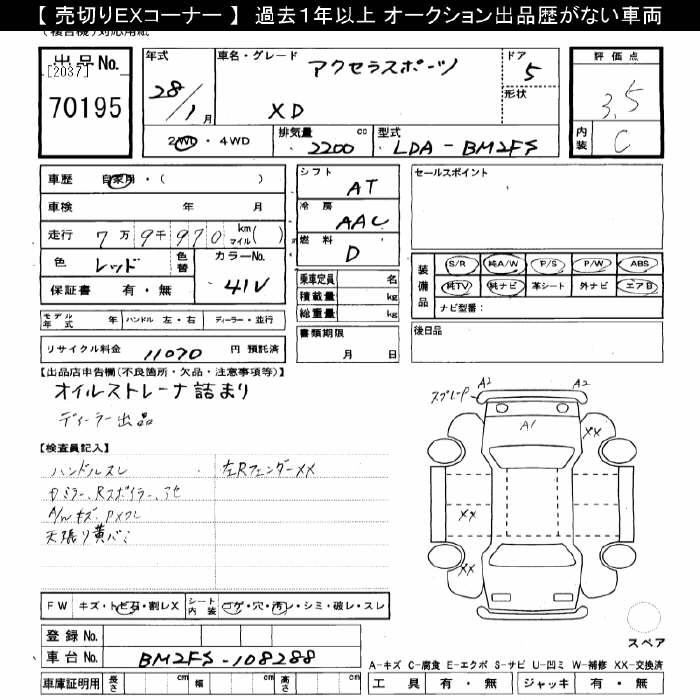 【 売切りEXコーナー 】 過去１年以上 オークション出品歴がない車両
出品No.
[2037]
70195
年式
28/1月
車名・グレード
アクセラスポーツ
XD
ドア
5
形状
評価点
3.5
内装
C
2WD・4WD
排気量 2200 cc
型式 LDA-BM2FS
車歴 自家用・( )
車検 年 月
走行 7万9千970 km マイル( )
色 レッド
色替
カラーNo. 41V
保証書 有・無
モデル年式 年
ハンドル 左・右
ディーラー・並行
リサイクル料金 11070 円 預託済
シフト AT
冷房 AAC
燃料 D
乗車定員 名
積載量 kg
総重量 kg
書類期限
月 日
セールスポイント
装備品
S/R 純A/W P/S P/W ABS
純TV 純ナビ 革シート 外ナビ エアB
ナビ型番：
後日品
【出品店申告欄(不良箇所・欠品・注意事項等)】
オイルストレーナ詰まり
ディーラー出品
【検査員記入】
ハンドルスレ
左RフェンダーXX
天張り黄バミ
スプレー
A2
A2
A1
XX
XX
XX
スペア
FW キズ・トビ石・割レX
シート内装 コゲ・穴・汚レ・シミ・破レ・スレ
登録No.
車台No. BM2FS-108288
車庫証明用 長さ cm 幅 cm 高さ cm
A-キズ C-腐食 E-エクボ S-サビ U-凹ミ W-補修 XX-交換済
工具 有・無 ジャッキ 有・無